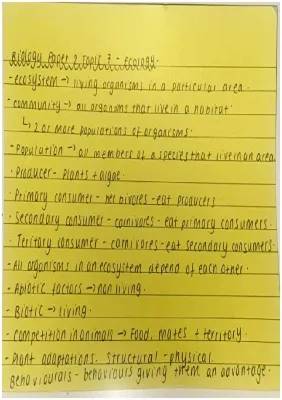 Biology Paper 2 Topic 7 - Ecology.
- ecosystem → living organisms in a particular area.
- community → all organisms that live in a habitat.
↳ 2 or more populations of organisms.
- Population → all members of a species that live in an area.
• Producer - Plants + algae.
• Primary consumer - herbivores - eat producers
• Secondary consumer - carnivores - eat primary consumers.
• Teritary consumer - carnivores - eat secondary consumers.
- All organisms in an ecosystem depend of each other.
- Abiotic factors → non living.
- Biotic → living.
- competition in animals → Food, mates + territory.
- Plant adaptations. Structural - physical.
Behaviourals - behaviours giving them an advantage.